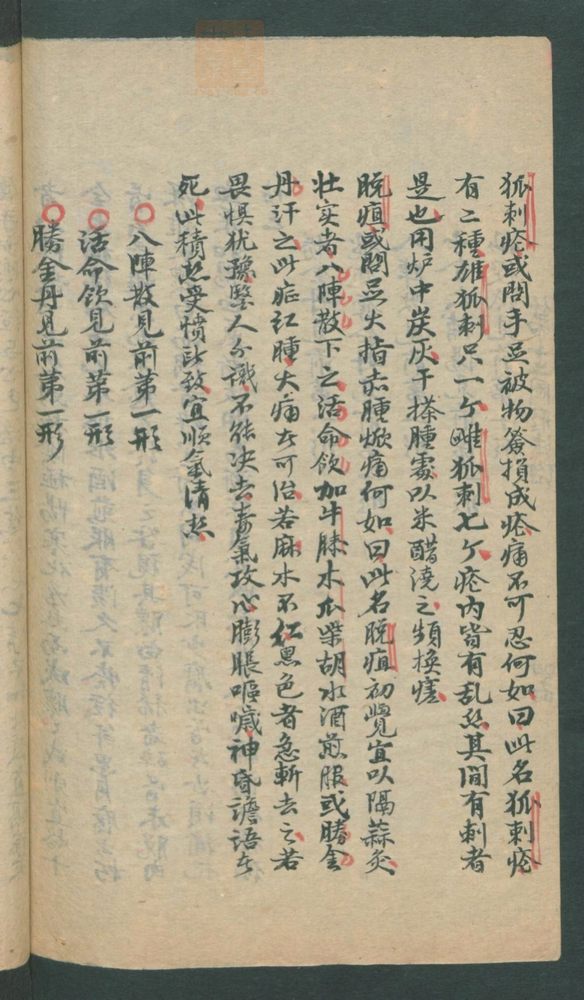 狐刺疮或問手足被物簽損成疮痛不可忍何如曰此名狐刺疮
有二種雄狐刺只一ケ雌狐刺七ケ疮内皆有乱丝其間有刺者
是也用炉中炭灰干搽腫處以米醋澆之頻換瘥
脱疽或問足大指赤腫焮痛何如曰此名脱疽初覺宜以隔蒜灸
壮实者八陣散下之活命飲加牛膝木瓜柴胡水酒煎服或勝金
丹汗之此症红腫大痛者可治若麻木不红黑色者急斬去之若
畏惧犹豫醫人分識不能决去毒氣攻心膨脹嘔噦神昏譫语者
死此積热憂憤所致宜順氣清热
八陣散見前第一形
活命飲見前第一形
勝金丹見前第一形